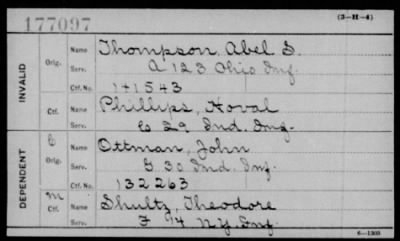 177097
(3-H-4)
INVALID
Orig. Name Thompson, Abel S.
Serv. A 123 Ohio Inf.
Ctf. No. 141543
Ctf. Name Phillips, Noval
Serv. C 29 Ind. Inf.
DEPENDENT
C
Orig. Name Ottman, John
Serv. G 30 Ind. Inf.
Ctf. No. 132263
M
Ctf. Name Shultz, Theodore
Serv. F 94 N.Y. Inf.
6-1303